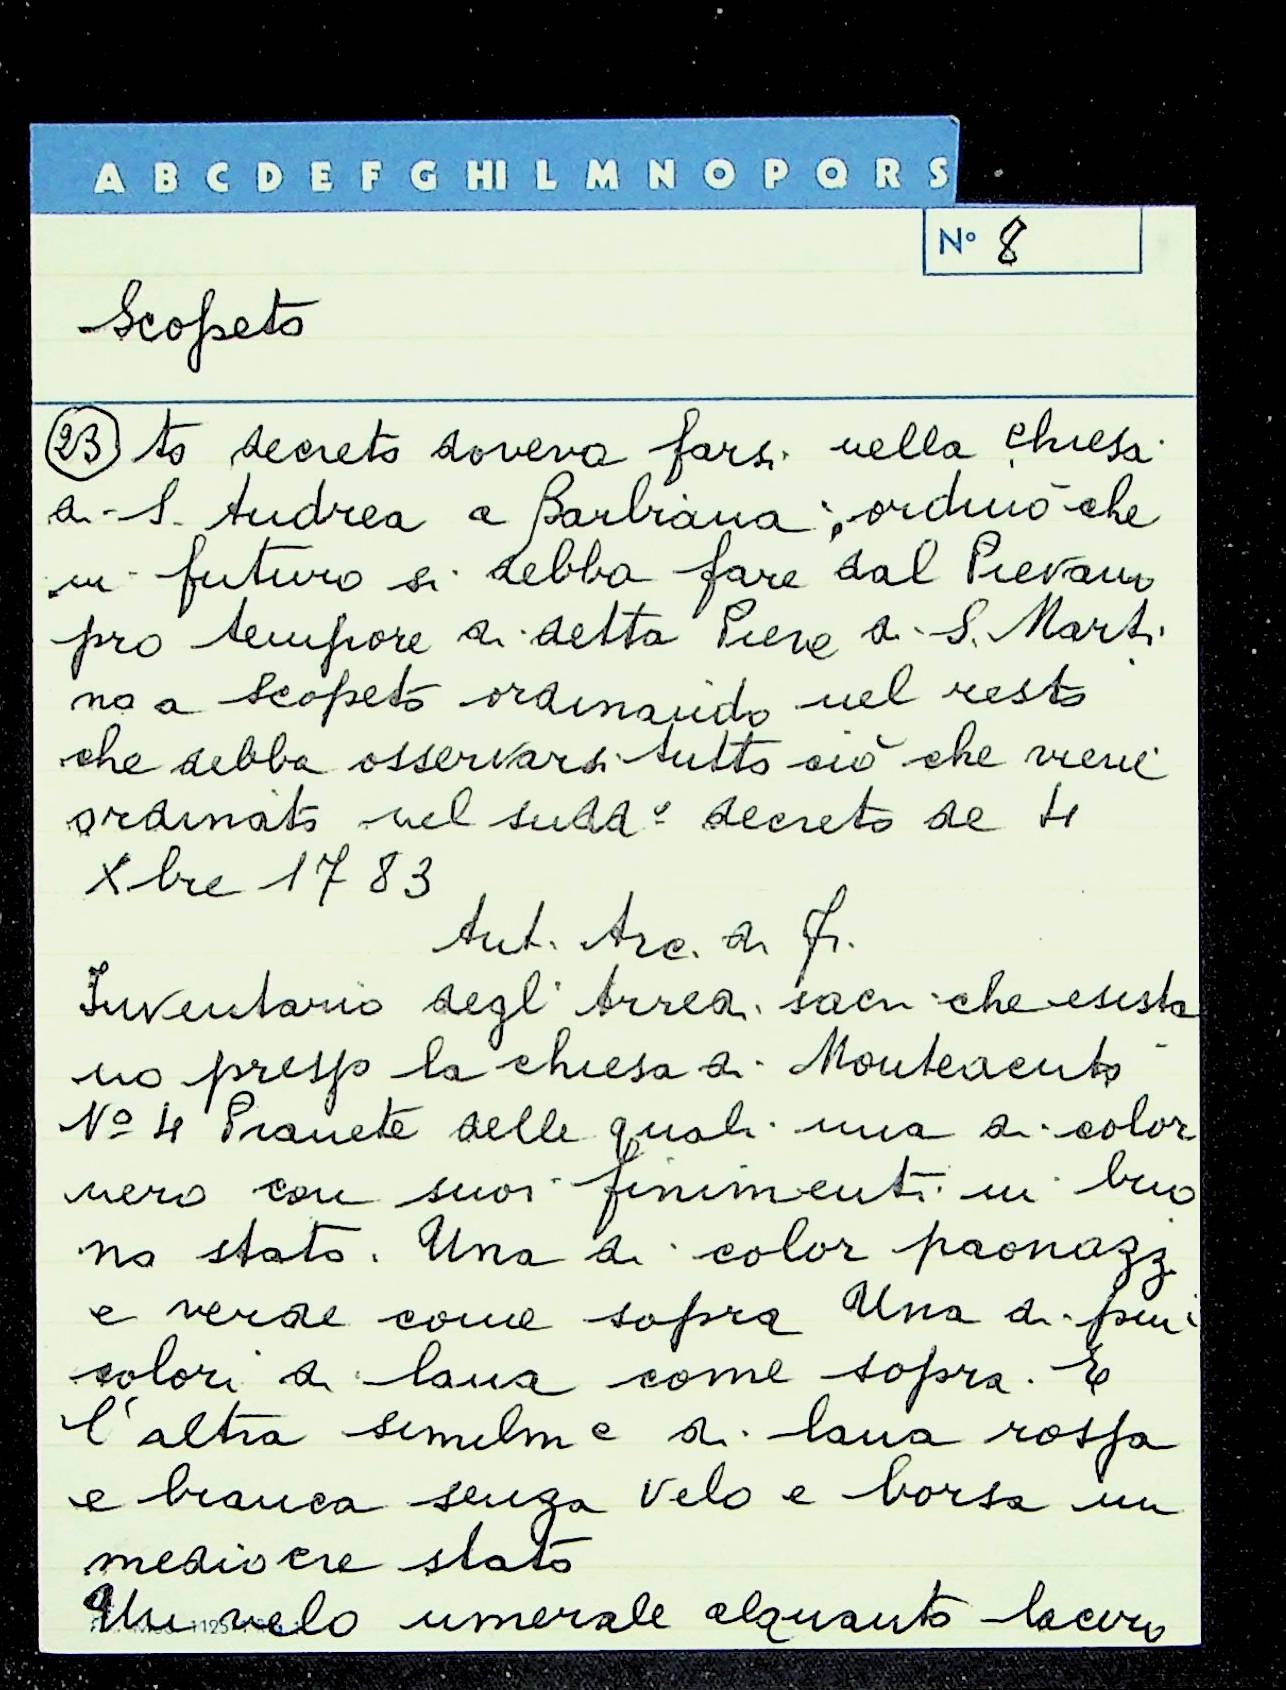 A B C D E F G HI L M N O P Q R S
Nº 8
Scopeto
23 to decreto doveva farsi nella chiesa
di S. Andrea a Barbiana; ordinò che
in futuro si debba fare dal Pievano
pro tempore di detta Pieve di S. Marti
no a Scopeto ordinando nel resto
che debba osservarsi tutto ciò che viene
ordinato nel sudd.º decreto de 4
Xbre 1783
Aut. Arc. di Fi.
Inventario degli Arredi sacri che esista
no presso la chiesa di Monteacuto
Nº 4 Pianete delle quali una di color
nero con suoi finimenti in buo
no stato. Una di color paonazz
e verde come sopra Una di più
colori di lana come sopra. E
l'altra similme di lana rossa
e bianca senza velo e borsa in
mediocre stato
Un velo umerale alquanto lacero